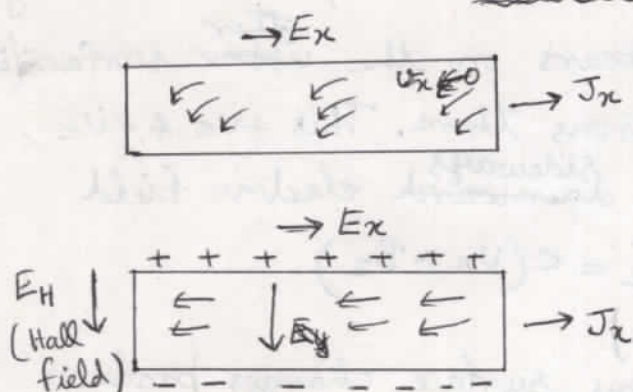 → Ex
vx < 0
→ Jx
→ Ex
+ + + + + + +
EH
(Hall
field)
Ey
→ Jx
- - - - - - -